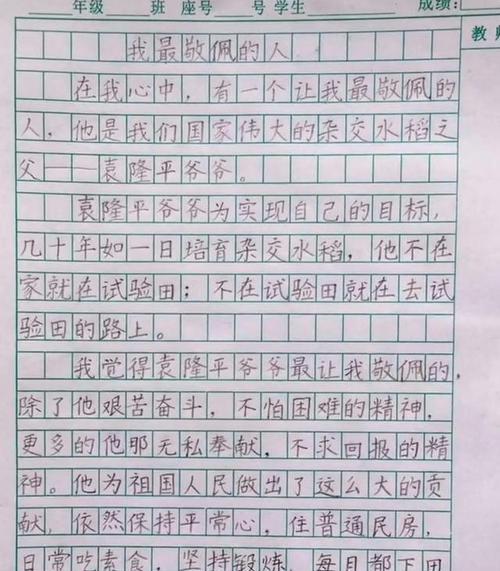 年级 班 座号 号 学生 成绩:
教师
我最敬佩的人
在我心中，有一个让我最敬佩的
人，他是我们国家伟大的杂交水稻之
父——袁隆平爷爷。
袁隆平爷爷为实现自己的目标，
几十年如一日培育杂交水稻，他不在
家就在试验田；不在试验田就在去试
验田的路上。
我觉得袁隆平爷爷最让我敬佩的，
除了他艰苦奋斗，不怕困难的精神，
更多的他那无私奉献，不求回报的精
神。他为祖国人民做出了这么大的贡
献，依然保持平常心，住普通民房，
日常吃素食，坚持锻炼，每日都下田